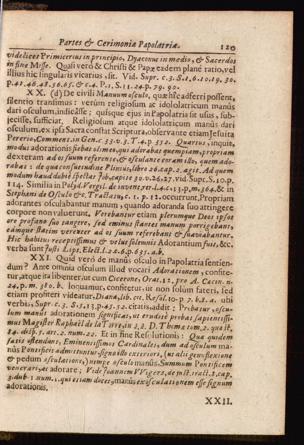 Partes & Cerimoniæ Papolatriæ. 129
videlicet Primicerius in principio, Dyaconus in medio, & Sacerdos
in fine Missæ. Quasi verò & Christi & Papæ eadem planè ratio, vel
illius hic singularis vicarius, sit. Vid. Supr. c.3. S.1.6.10.19.30.
p. 41.46.48.56.65. & c.4. P.1. S.11.24. p. 79. 90.
XX. (d) De civili Manuum osculo, quæ hîc adferri possent,
silentio transimus: verùm religiosum ac idololatricum manûs
dari osculum, indicâsse; quisque ejus in Papolatria sit usus, sub-
jecisse, sufficiat. Religiosum atque idololatricum manûs dari
osculum, ex ipsa Sacra constat Scriptura, observante etiam Jesuita
Pererio. Comment. in Gen. c. 33. v. 3. T. 4. p. 352. Quartus, inquit,
modus adorationis fiebat olim eo, qui adorabat quempiam, propriam
dexteram ad os suum referente, & osculante eam
modum haud dubiè spectat Job, capite 31. v. 26. 27. vid. Supr. S. 10. p.
114. Similia in Polyd. Vergil. de inven. rer. l. 4. c. 13. p. m. 364. & in
Stephani de Osculo &c. Tractatu, c. 1. p. 12. occurrunt, Propriam
adorantes osculabantur manum, quando adoranda suo attingere
corpore non valuerunt. Verebantur etiam plerumque Deos ipsos
ore profano suo tangere, sed eminus stantes manum porrigebant,
eámque statim vererent ad os suum referebant & suaviabantur.
Hic habitus receptissimus & velut solennis Adorantium fuit, &c.
verba sunt Justi Lips. Elect. l. 2. c. 6. p. 631. a. b.
XXI. Quid verò de manûs osculo in Papolatria sentien-
dum? Ante omnia osculum illud vocari Adorationem, confite-
tur, atque ita libenter, ut cum Cicerone, Orat. 12. pro A. Cæcin. n.
24. p. m. 380. b. loquamur, confitetur, ut non solùm fateri, sed
etiam profiteri videatur, Diana, lib. cit. Resol. 10. p. 7. b. 8. a. ubi
verba, Supr. c. 3. S. 1. 13. p. 43. 52. citatis, addit; Probatur, oscu-
lum manûs adorationem significari, ut erudité probat sapientissi-
mus Magister Raphaël de la Torre, in 2. 2. D. Thomæ tom. 2. quæst.
84. disp. 1. art. 2. num. 22. Et in fine Resolutionis: Quæ quidem
satis ostendunt, Eminentissimos Cardinales, dum ad osculum ma-
nûs Pontificis admittuntur, signo illo exteriori, (ut aliis genuflexione
& pedum osculatione,) nempe osculo manûs, Summum Pontificem
venerari, et adorare; Vide Joannem VViggers, de just.
3. dub. 1. num. 1. qui etiam docet, manûs exosculationem esse signum
adorationis.
XXII.